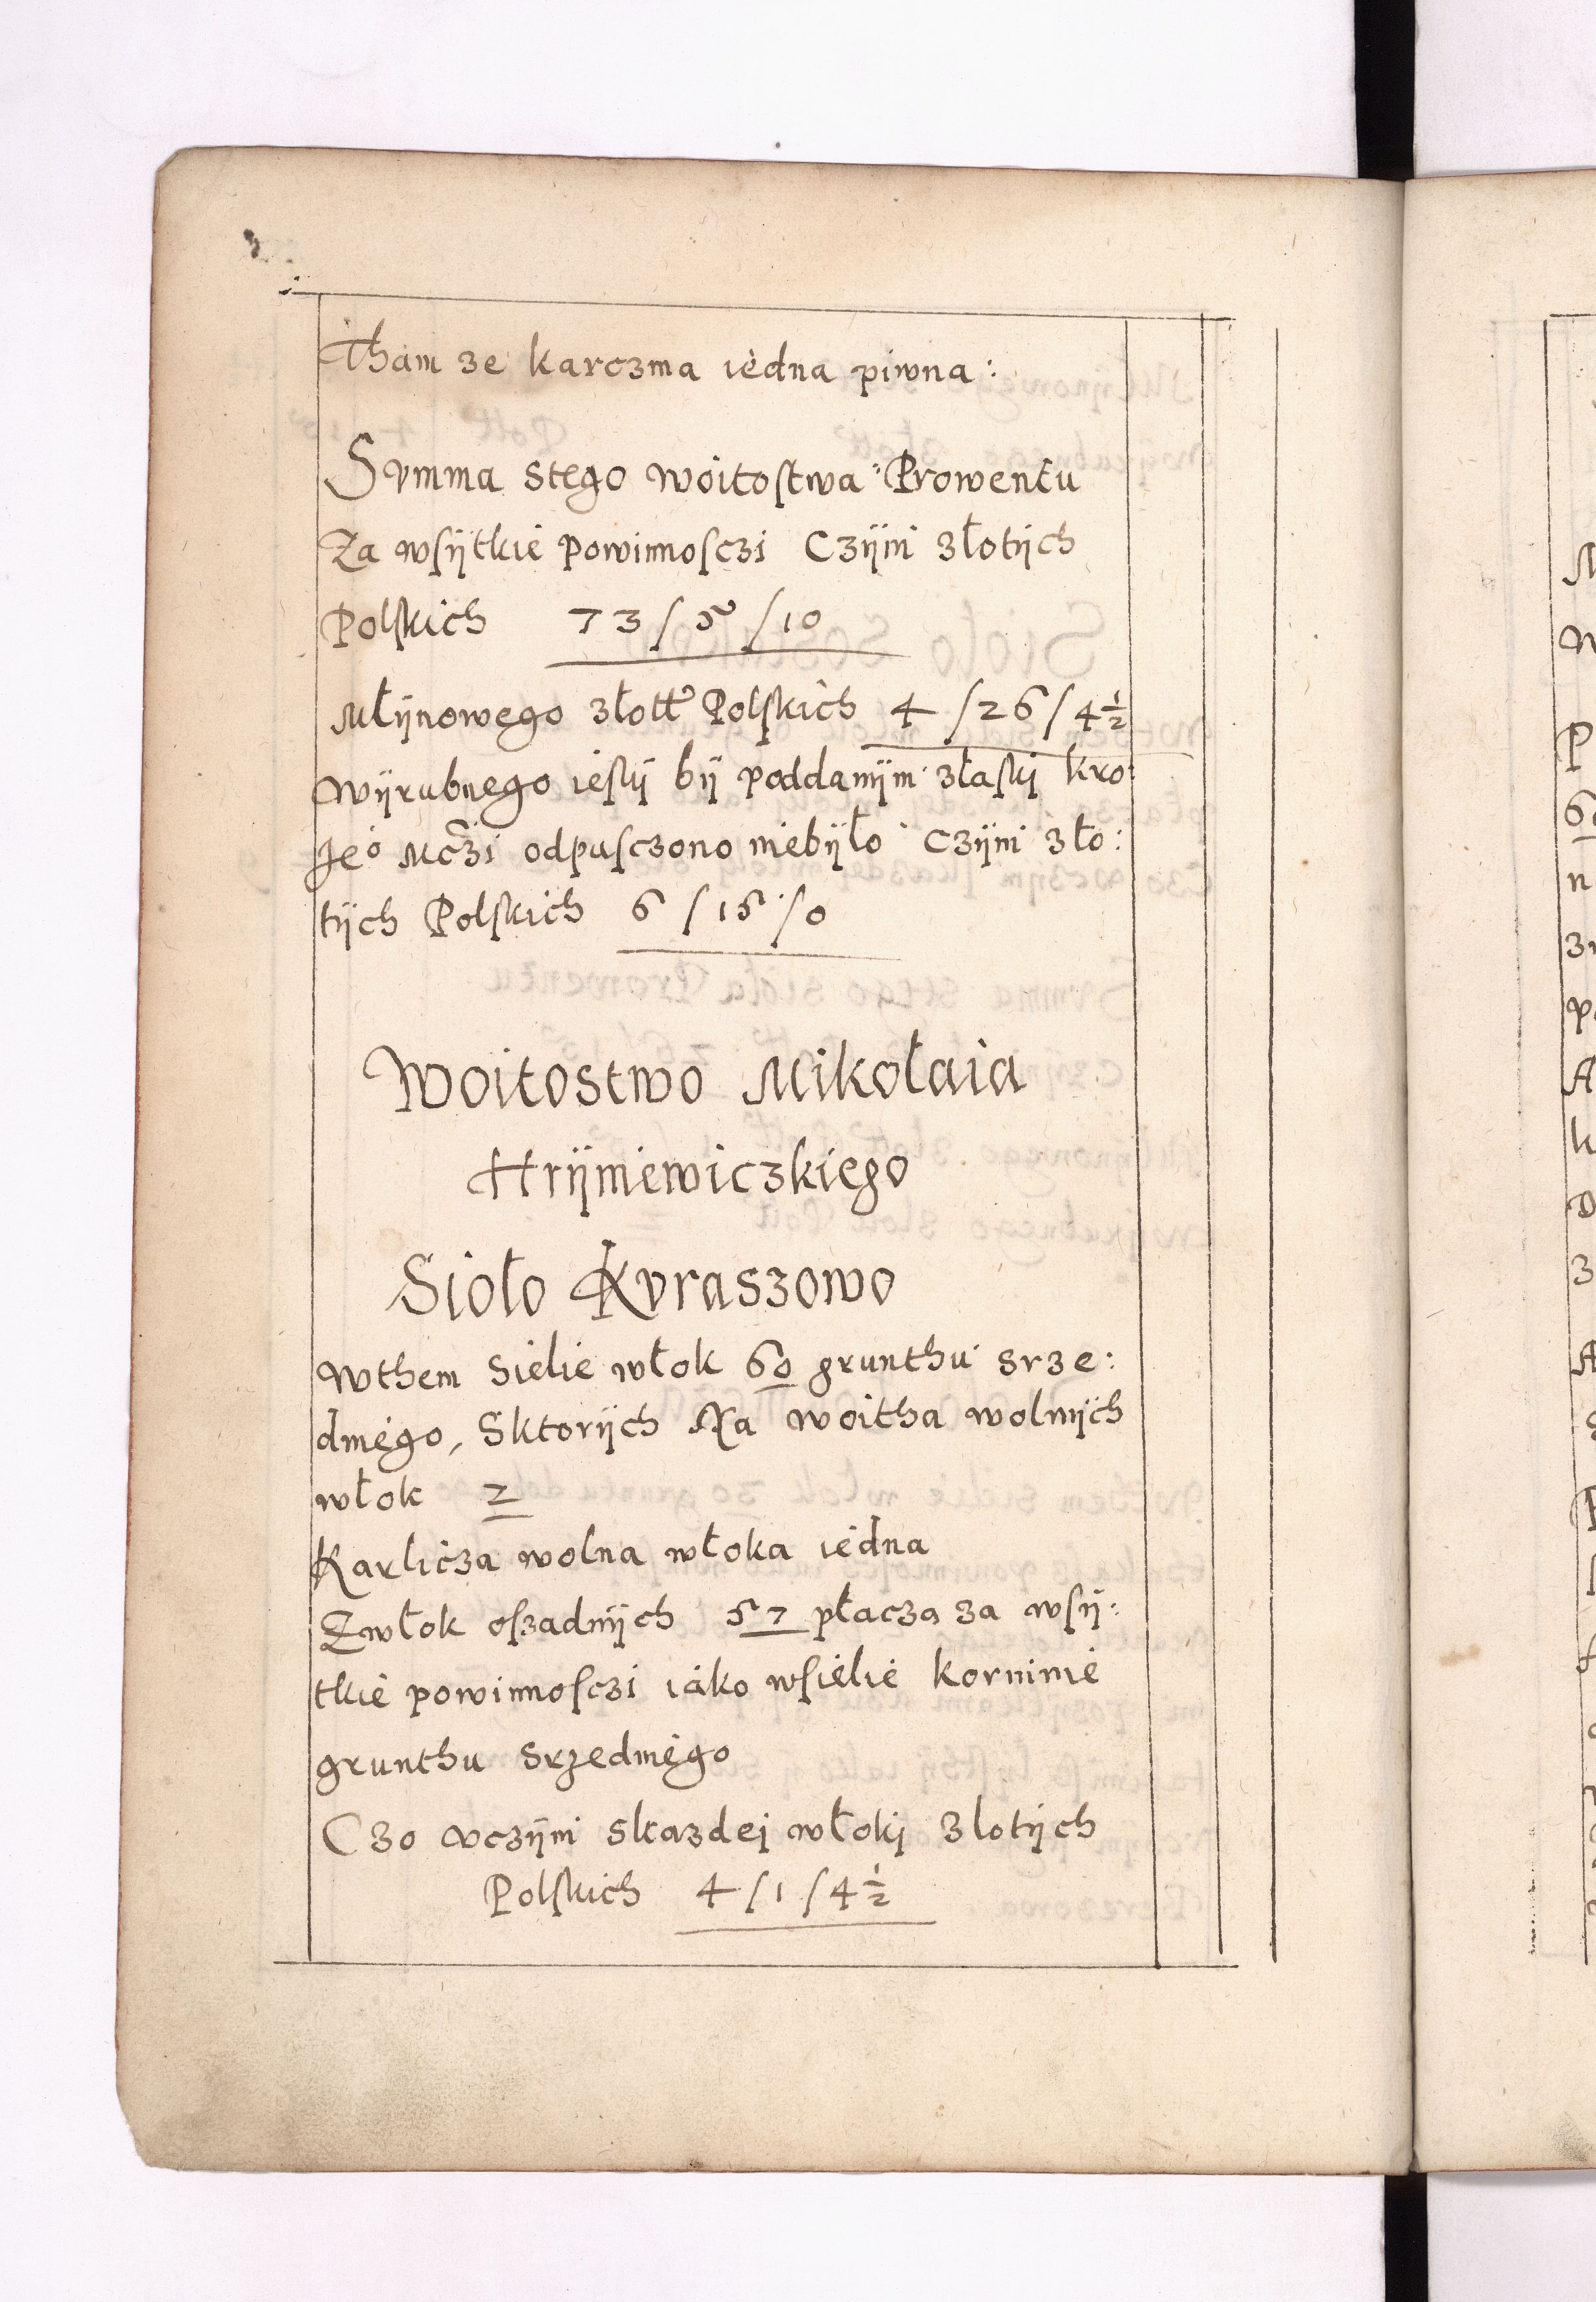 Tham ze karczma iedna piwna :
Svmma stego woitostwa Prowentu
Za wsÿtkie powinnosczi Czÿni złotÿch
Polskich 73 / 5 / 10
Młÿnowego złott Polskich 4 / 26 / 4 1/2
wÿrubnego ieslÿ bÿ poddanÿm złaski kro:
Jeo Mczi odpusczono niebÿło Czÿni zło:
tÿch Polskich 6 / 15 / 0
Woitostwo Mikołaia
Hrÿniewiczkiego
Sioło Kvraszowo
Wthem Sielie włok 60 grunthu srze:
dniego, Sktorÿch Na woitha wolnÿch
włok 2
Karlicza wolna włoka iedna
Zwłok oszadnÿch 57 płacza za wsÿ:
tkie powinnosczi iako wsielie korninie
grunthu srzedniego
Czo vczÿni skazdej włokj zlotÿch
Polskich 4 / 1 / 4 1/2